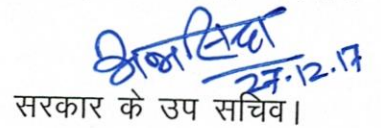 27.12.17
सरकार के उप सचिव।